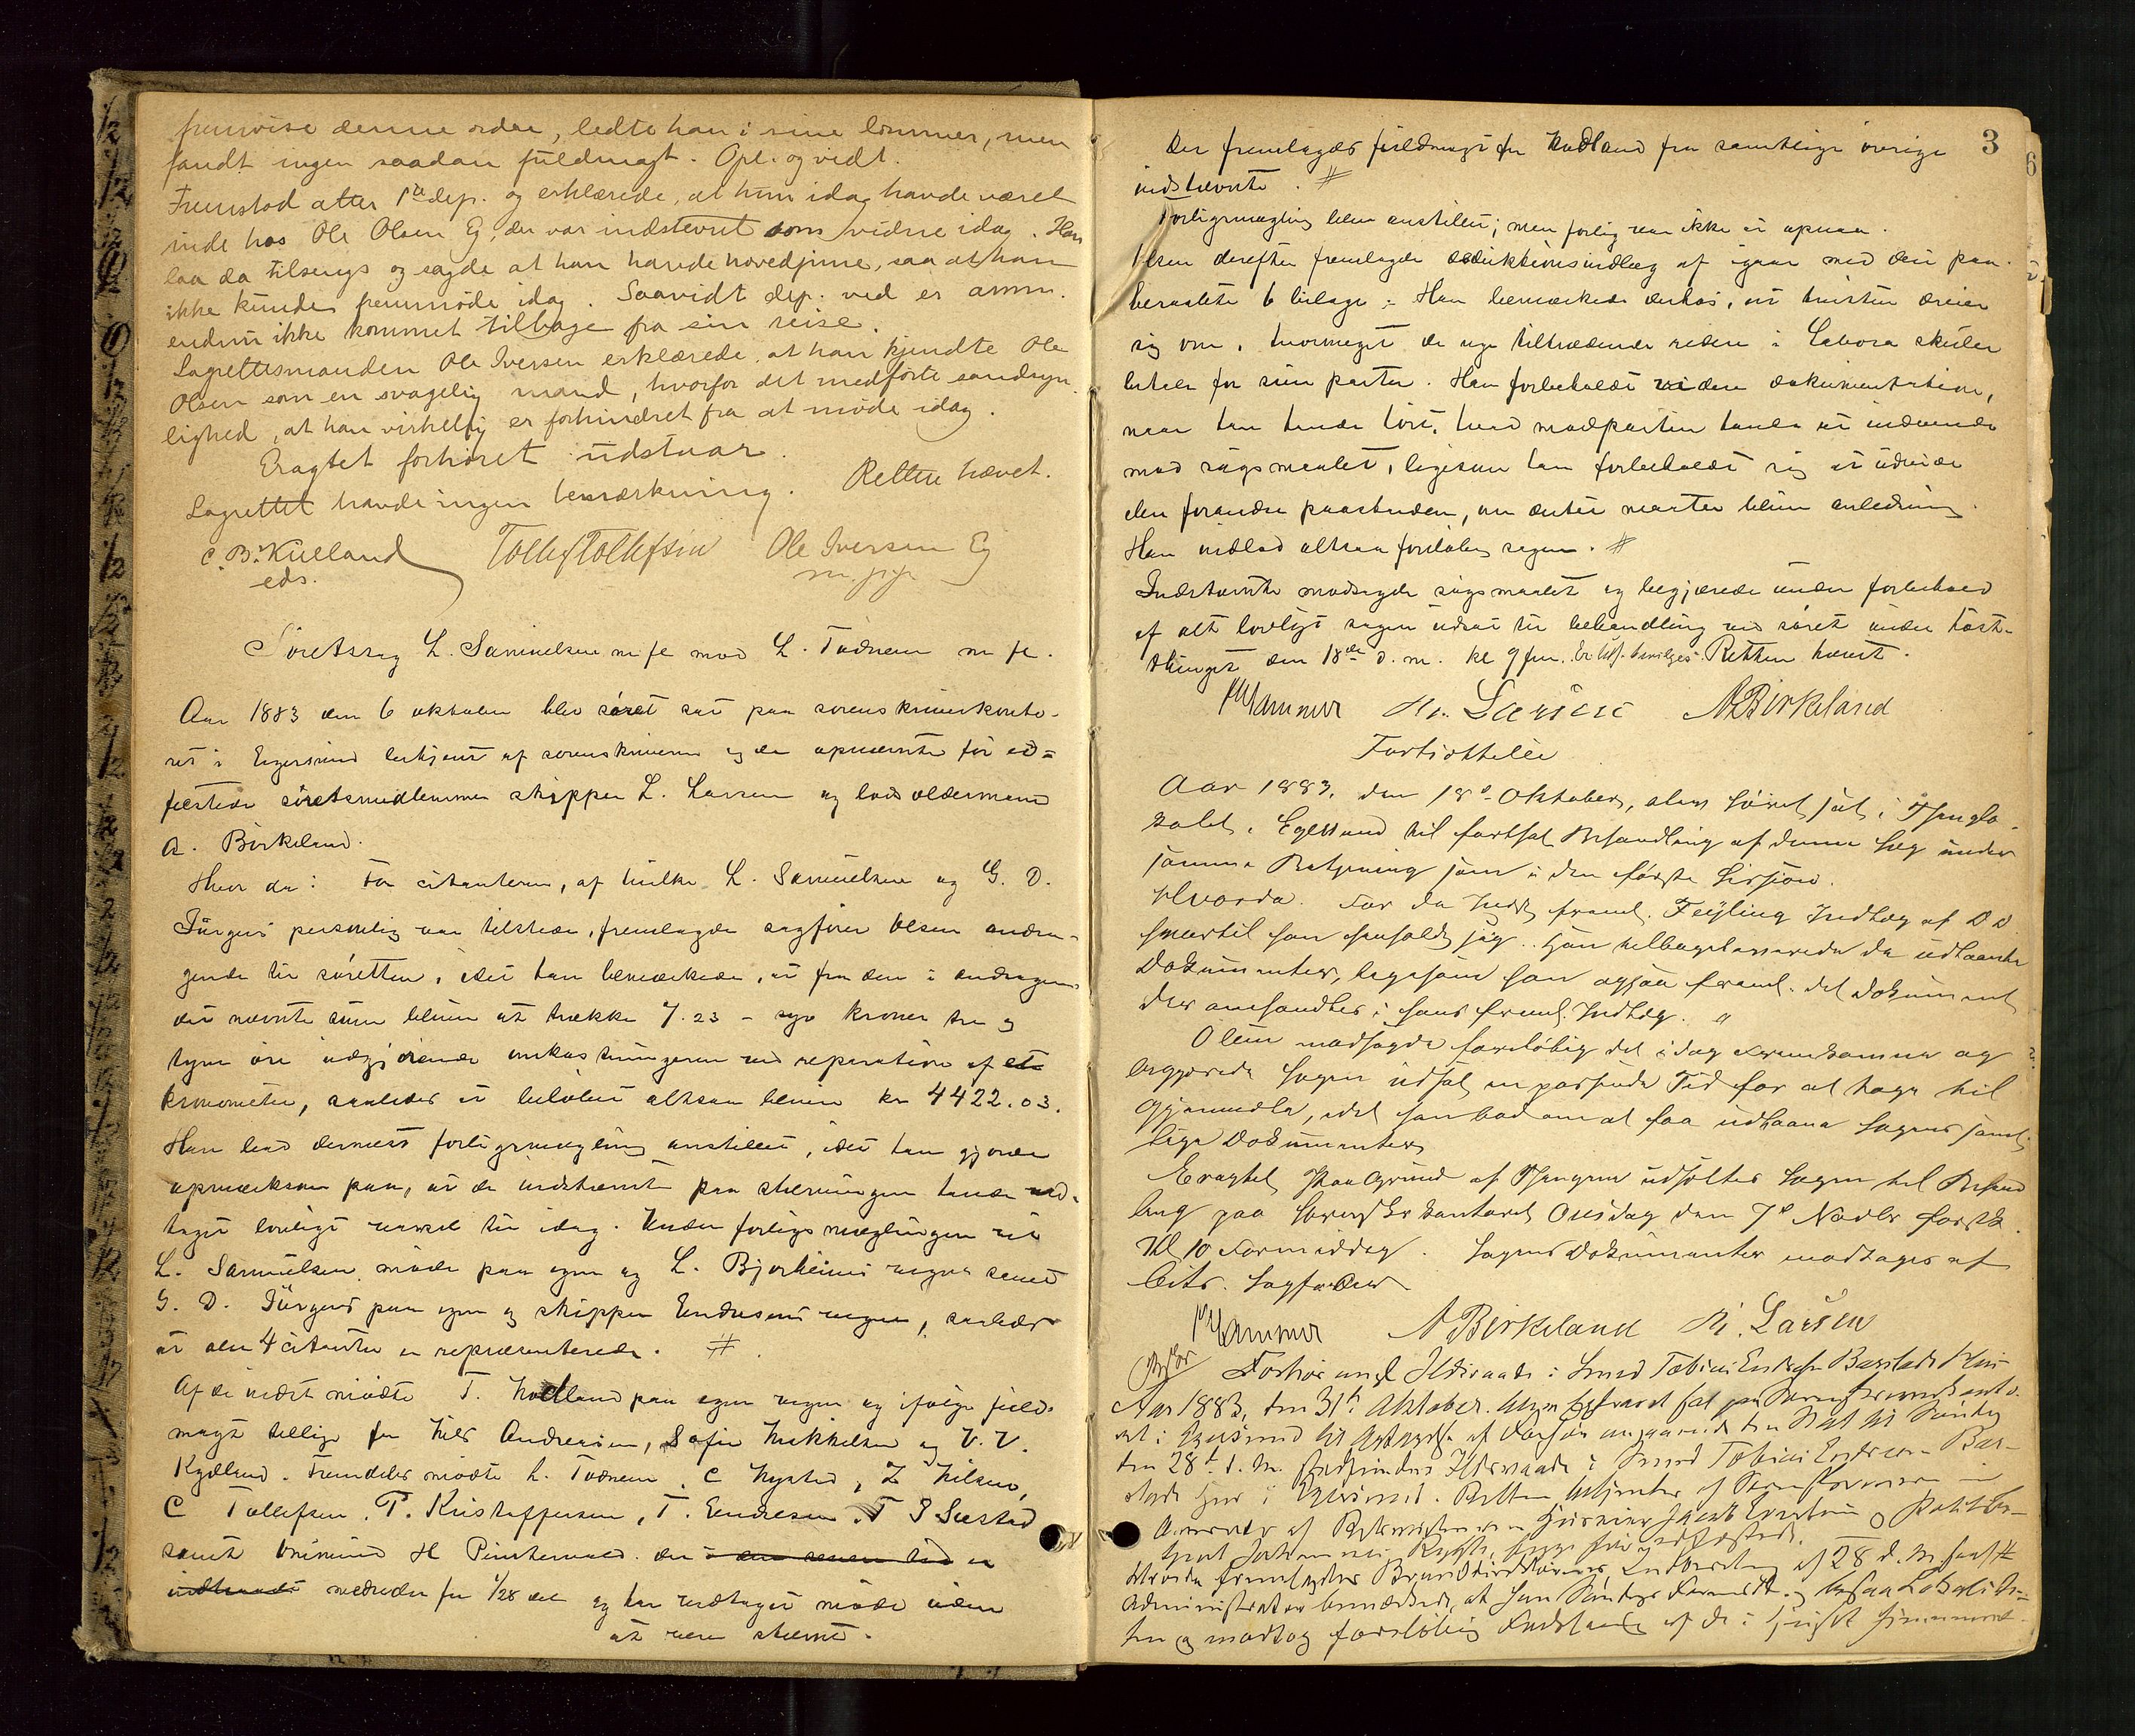 fremvise denne ordre, ledte han i sine lommer, men
fandt ingen saadan fuldmagt. Opl. og vedt.
Fremstod atter 1ste dep. og erklærede, at hun idag havde været
inde hos Ole Olsen Eg, der var indstevnt som vidne idag. Han
laa da tilsengs og sagde at han havde hovedpine, saa at han
ikke kunde fremmøde idag. Saavidt dep. ved er
endnu ikke kommet tilbage fra sin reise.
Lagrettesmanden Ole Iversen erklærede, at han kjendte Ole
Olsen som en svagelig mand, hvorfor det medførte sandsyn-
lighed, at han virkelig er forhindret fra at møde idag.
Eragtet forhøret udstaar.
Lagrettet havde ingen bemærkning. Retten hævet.
C. B. Kielland Tollef Tollefsen Ole Iversen Eg
eds. m. p. p.
Søretssag L. Samuelsen m fl mod L. Tadnem m fl.
Aar 1883 den 6 oktober blev søret sat paa sorenskriverkonto-
ret i Egersund betjent af sorenskriveren og de opnævnte før ed=
fæstede søretsmedlemmer skipper L. Larsen og lodsoldermand
A. Birkeland.
Hvor da: For citanterne, af hvilke L. Samuelsen og G. D.
Jürgens personlig var tilstede, fremlagde sagfører Olsen andra-
gende til søretten, idet han bemærkede, at fra den i andragen-
det nævnte sum bliver at trække 7.23 – syv kroner tre og
tyve øre udgjørende omkostningerne ved reparation af et
kronometer, saaledes at beløbet altsaa bliver kr 4422.03.
Han bad dernæst forligsmægling anstillet, idet han gjorde
opmærksom paa, at de indstævnte paa stævningen havde ved-
taget lovligt varsel til idag. Under forligsmæglingen vil
L. Samuelsen møde paa egne og L. Bjørheims vegne samt
G. D. Jürgens paa egne og skipper Endresens vegne, saaledes
at alle 4 citanter er repræsenterede. #
Af de indst mødte T. Hodland paa egne vegne og ifølge fuld-
magt tillige for Nils Andreasen, Sofie Mikkelsen og V. V.
Kydland. Fremdeles mødte L. Tadnem, C Nysted, Z Nilsen,
C Tollefsen, P. Kristoffersen, T. Endresen, T S Seested
samt Omund H Pinstervold. der i den senere tid er
indtraadt medreder for 1/28 del og har vedtaget møde uden
at være stævnt.
3
Der fremlagdes fuldmagt for Hodland fra samtlige øvrige
indstævnte. #
Forligsmægling blev anstillet; men forlig var ikke at opnaa.
Olsen derefter fremlagde deduktionsindlæg af igaar med deri paa-
beraabte 6 bilage. Han bemærkede derhos, at tvisten dreier
sig om, hvormeget de nye tiltrædende redere i Labora skulde
betale for sine parter. Han forbeholdt videre dokumentation,
naar han havde hørt, hvad modparten havde at indvende
mod søgsmaalet, ligesom han forbeholdt sig at udvide
eller forandre paastanden, om dertil maatte blive anledning.
Han indlod altsaa foreløbig sagen. #
Indstævnte modsagde søgsmaalet og begjærede under forbehold
af alt lovligt sagen udsat til behandling ved søret under høst-
thinget den 18de d. m. kl 9 fm. Retten hævet.
Hammer H. Larsen A Birkeland
Fortsættelse
Aar 1883, den 18de Oktober, blev Søret sat i Thinglo-
kalet i Egersund til fortsat Behandling af denne Sag under
samme Betjening som i den første Session.
Hvorda. For de Indst freml. Feyling Indlæg af D. D.
hvortil han henholdt sig. Han tilbageleverede de udlaante
Dokumenter, ligesom han ogsaa freml. det Dokument
der omhandles i hans freml. Indlæg. "
Olsen modsagde foreløbig det idag Fremkomne og
begjærede Sagen udsat en passende Tid for at tage til
Gjenmæle, idet han bad om at faa udlaane Sagens samt-
lige Dokumenter
Eragtet Paa Grund af Thingene udsættes Sagen til Behand
ling paa Sorenskr kontoret Onsdag den 7de Novbr førstk.
Kl 10 Formiddag. Sagens Dokumenter modtages af
Cits. Sagfører
Hammer A Birkeland H. Larsen
Forhør ang Ildsvaade i Smed Tobias Endresen Barstads Hus
Aar 1883, den 31te Oktober blev Extraret sat paa Sorenskriverkonto-
ret i Egersund til Optagelse af Forhør angaaende den Nat til Søndag
den 28de d. M. stedfundne Ildsvaade i Smed Tobias Endresen Bar-
stads Hus i Egersund. Retten betjentes af Sorenskriveren
Hvorda fremlagdes Indberetning af 28 d. M.
Administrator bemærkede, at han Søndag
og modtog foreløbig